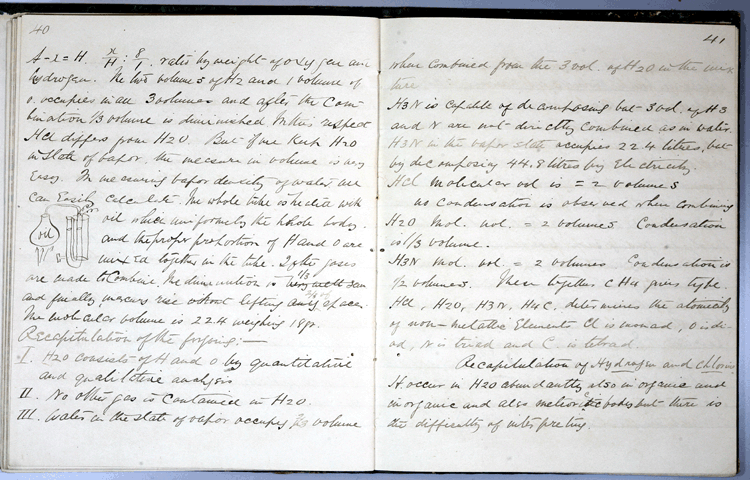 40
A-x=H. x/H : 8/1. ratio by weight of oxygen and
hydrogen. The two volumes of H2 and 1 volume of
o. occupies in all 3 volumes and after the Com-
bination 1/3 volume is diminished In this respect
HCl differs from H2O. But if we Keep H2O
in State of vapor. the measure in volume is very
Easy. In measuring vapor density of water we
Can Easily calculate. The whole tube is heated with
oil which uniformely the whole body.
oil
and the proper proportion of H and O are
mixed together in the tube. If the gases
are made to Combine. The diminution is 1/3
and finally mercury rise without lefting any space.
The molecular volume is 22.4 weighing 18gr.
Recapitulation of the forgoing:—
I. H2O consists of H and O by quantitative
and qualitative analysis
II. No other gas is Contained in H2O.
III. Water in the state of vapor occupes 2/3 volume
41
when combined from the 3 vol. of H2O in the mix-
ture
H3N is capable of decomposing but 3 vol. of H3
and N are not directly combined as in water.
H3N in the vapor state occupies 22.4 litres, but
by decomposing 44.8 litres by Electricity.
HCl molecular vol is = 2 volumes
no Condensation is observed when combining
H2O Mol. vol. = 2 volumes Condensation
is 1/3 volume.
H3N mol. vol. = 2 volumes Condensation is
1/2 volumes. These together CH4 gives type.
HCl, H2O, H3N, H4C, determines the atomicity
of non-metallic Elements Cl is monad, O is di-
ad, N is triad and C is tetrad.
Recapitulation of Hydrogen and Chlorine
H. occur in H2O abundantly also in organic and
inorganic and also meteoritic bodies but there is
the difficulty of interpreting.